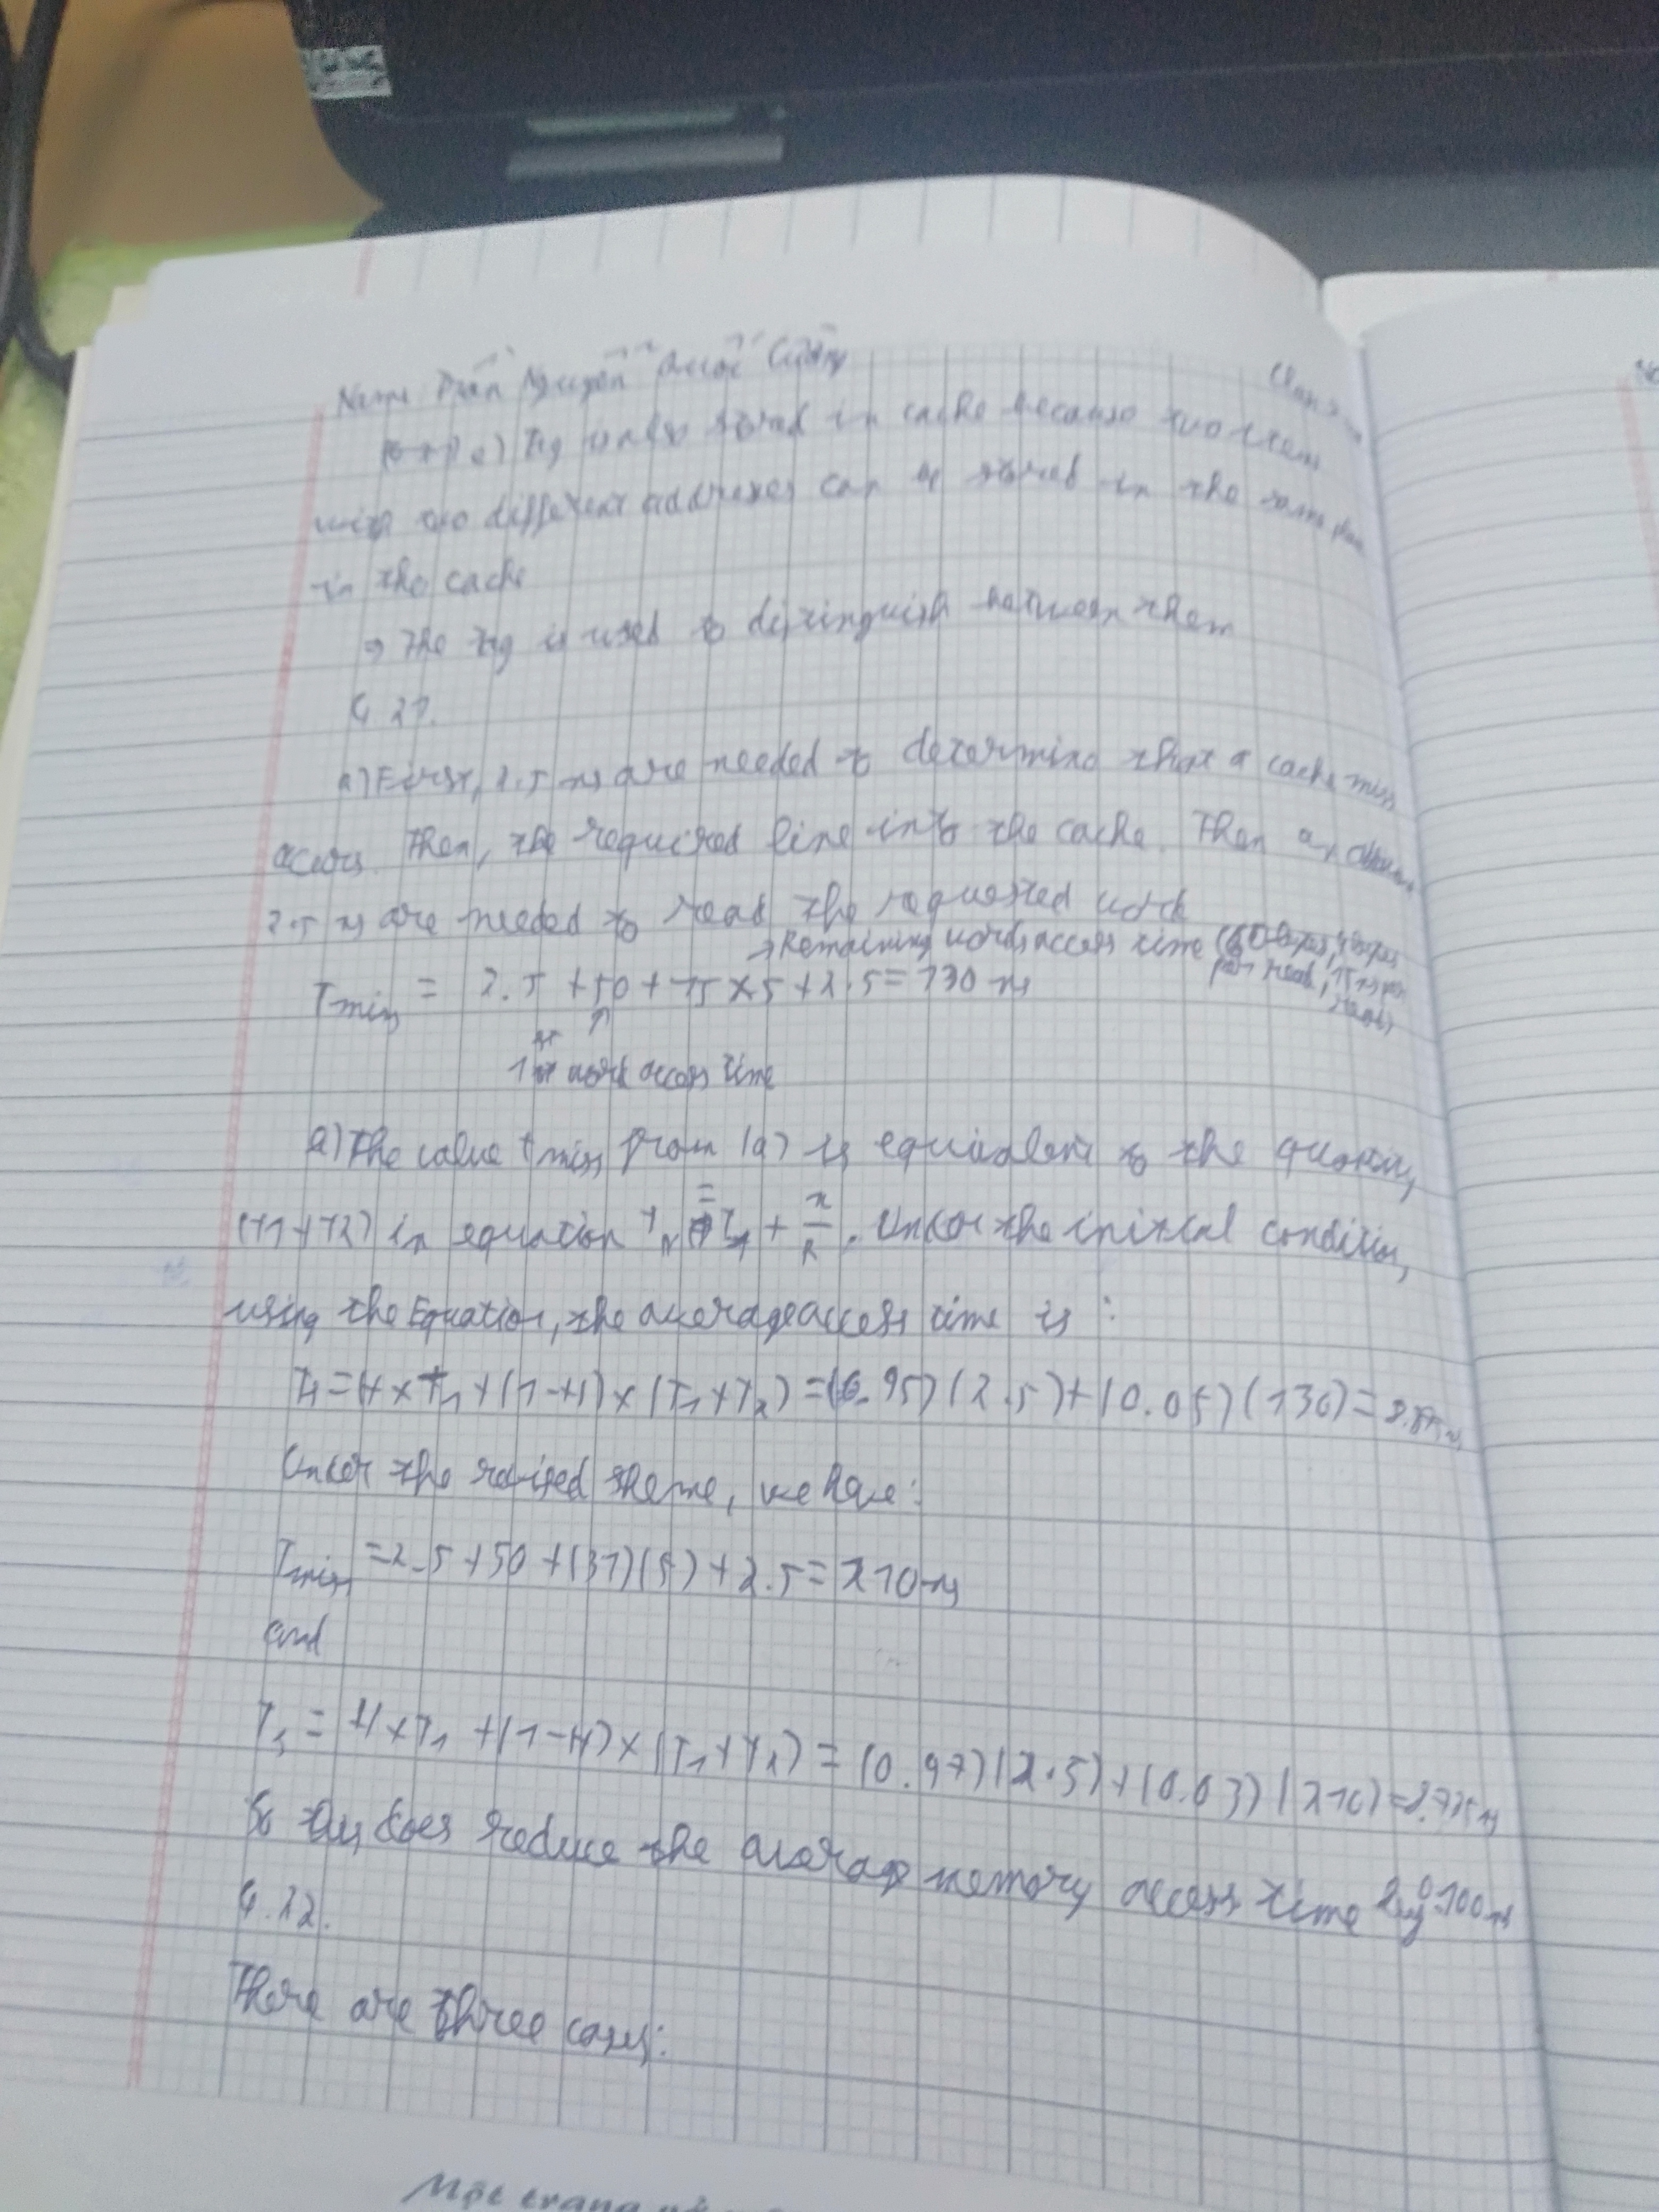 Name Trần Nguyễn Quốc Cường
e) Tag in cache because two item
with two different addresses can be stored in the same
in the cache
⇒ The tag is used to distinguish between them
4.21.
a) First, 2.5 ns are needed to determine that a cache miss
occurs. Then, the required line into the cache. Then an
2.5 ns are needed to read the requested word
→ Remaining words access time
per read, 15 ns per
Tmiss = 2.5 + 50 + 15 x 5 + 2.5 = 130 ns
↑
1st word access time
a) The value Tmiss from (a) is equivalent to the quantity
(T1 + T2) in equation = + n/R. Under the initial condition,
using the Equation, the average access time is:
Ts = H x T1 + (1 - H) x (T1 + T2) = (0.95)(2.5) + (0.05)(130) = 8.875 ns
Under the revised sheme, we have:
Tmiss = 2.5 + 50 + (31)(5) + 2.5 = 210 ns
and
Ts = H x T1 + (1 - H) x (T1 + T2) = (0.97)(2.5) + (0.03)(210) = 8.725 ns
So this does reduce the average memory access time
4.22.
There are three cases:
Một trang